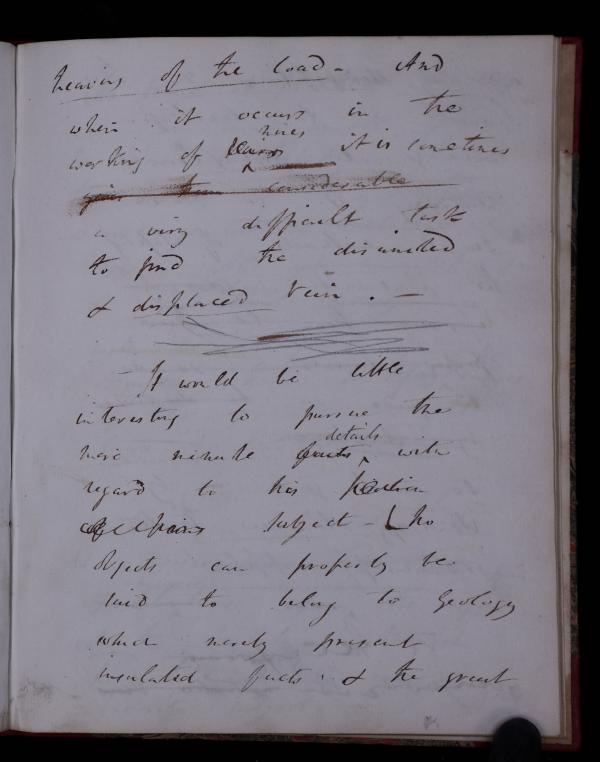 heaving of the load - And
when it occurs in the
mines
working of it is sometimes
gives them considerable
a very difficult task
to find the disunited
& displaced vein. -
It would be little
interesting to pursue the
details
more minute facts with
regard to this
subject - No
objects can properly be
said to belong to Geology
which merely present
insulated facts. & the great